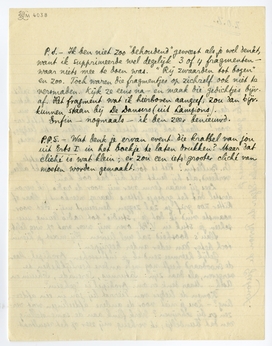 P.S. - Ik ben niet zoo "behoudend" geweest als je wel denkt,
want ik supprimeerde wel degelijk 3 of 4 fragmenten -
waar niets mee te doen was. "Bij zwaarden tot bogen"
en zoo. Toch waren die fragmentjes op zichzelf ook niet te
versmaden. Kijk ze eens na - en maak die gedichtjes bijv.
af. Het fragment wat ik hierboven aangeef zou dan bijv.
kunnen staan bij De Dansers (uit 3 lampions).
Enfin - nogmaals - ik ben zeer benieuwd.
P.P.S. - Wat denk je ervan event. die krabbel van jou
uit Erts I. in het boekje te laten drukken? Maar dat
cliché is wat klein; er zou een iets grooter cliché van
moeten worden gemaakt.